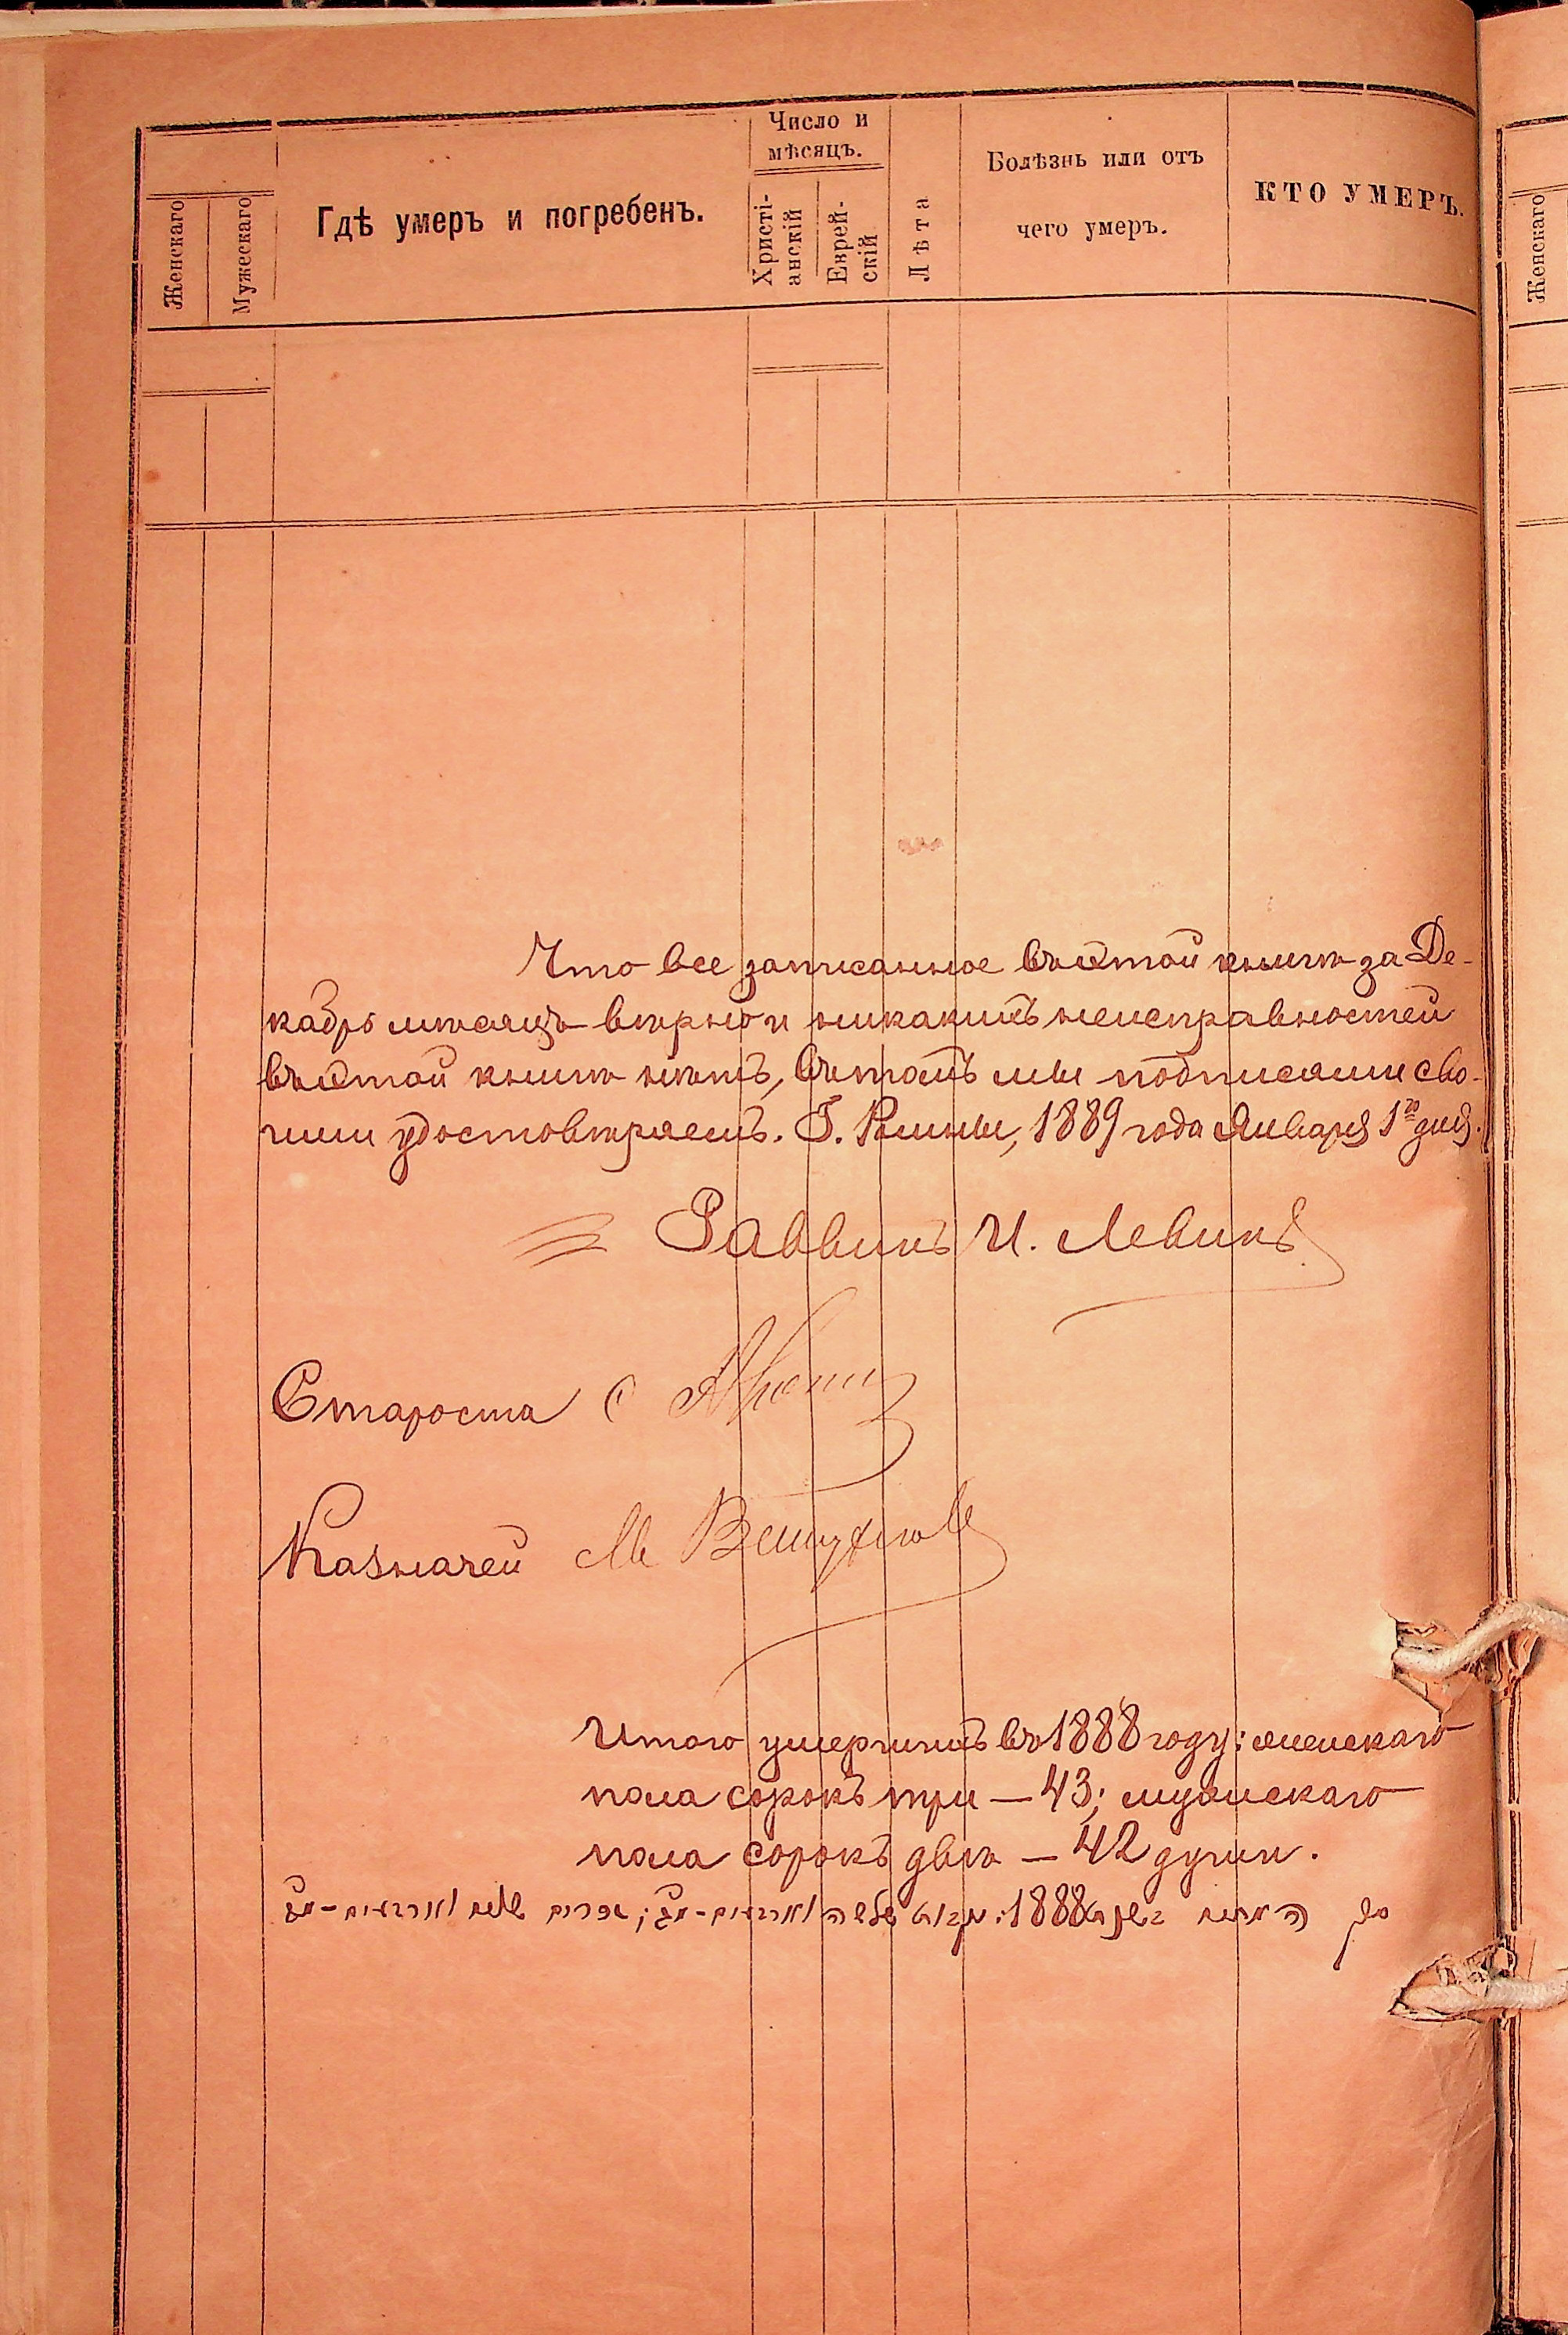 Женскаго
Мужескаго
Гдѣ умеръ и погребенъ.
Число и
мѣсяцъ.
Христі-
анскій
Еврей-
скій
Лѣта
Болѣзнь или отъ
чего умеръ.
КТО УМЕРЪ.
Женскаго
Что все записанное въ этой книгѣ за Де-
кабрь мѣсяцъ вѣрно и никакихъ неисправностей
въ этой книгѣ нѣтъ, въ томъ мы подписями сво-
ими удостовѣряемъ. Г. Ромны, 1889 года Января 1го дня.
Раввинъ И. Левинъ
Староста
Казначей М
Итого умершихъ въ 1888 году: женскаго
пола сорокъ три — 43; мужскаго
пола сорокъ двѣ — 42 души.
1888: נקבות שלשה וארבעים - מ"ג; זכרים שנים וארבעים - מ"ב